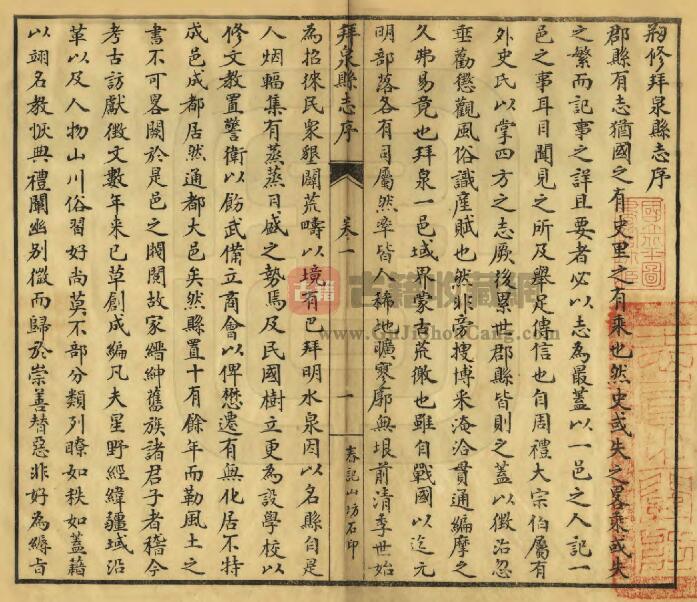 剙修拜泉縣志序
郡縣有志猶國之有史里之有乘也然史或失之畧乘或失
之繁而記事之詳且要者必以志為最蓋以一邑之人記一
邑之事耳目聞見之所及舉足傳信也自周禮大宗伯屬有
外史氏以掌四方之志厥後累世郡縣皆則之蓋以徵治忽
垂勸懲觀風俗識產賦也然非旁搜博采淹洽貫通編摩之
久弗易竟也拜泉一邑域界蒙古荒徼也雖自戰國以迄元
明部落各有司屬然率皆人稀地曠寥廓無垠前清季世始
拜泉縣志序
卷一
一
春記山坊石印
為招徠民衆墾闢荒疇以境有巴拜明水泉因以名縣自是
人烟輻集有蒸蒸日盛之勢焉及民國樹立更為設學校以
修文教置警衛以飭武備立商會以俾懋遷有無化居不特
成邑成都居然通都大邑矣然縣置十有餘年而勒風土之
書不可畧闕於是邑之閥閱故家縉紳舊族諸君子者稽今
考古訪獻徵文數年來已草創成編凡夫星野經緯疆域沿
革以及人物山川俗習好尚莫不部分類列瞭如秩如蓋藉
以翊名教恢典禮闡幽別微而歸於崇善替惡非好為縟旨
古籍
古籍收藏网
www.GuJiShouCang.com